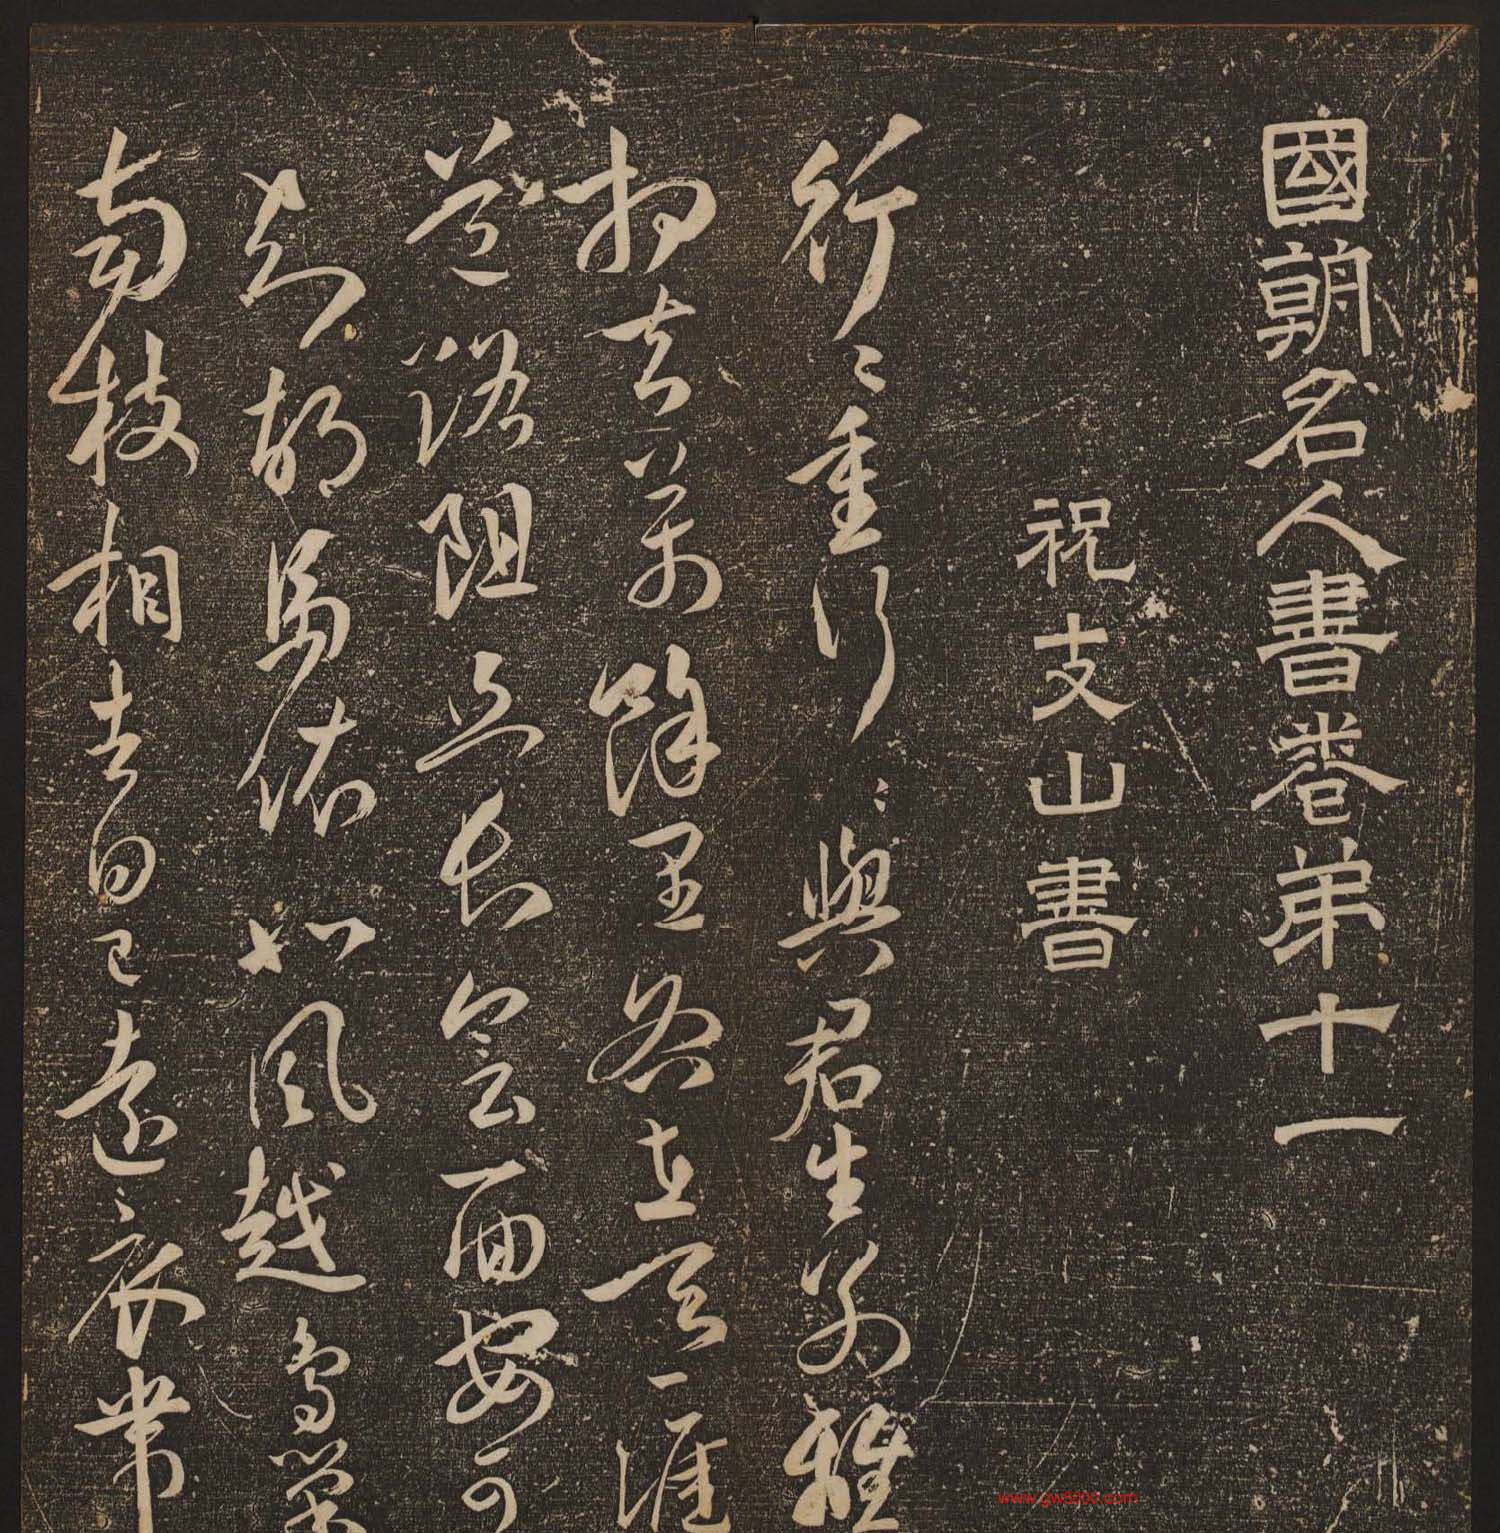 國朝名人書卷弟十一
祝支山書
行〻重行〻與君生別離
相去萬餘里各在天一涯
道路阻且長會面安可
知胡馬依北風越鳥巢
南枝相去日已遠衣帶
www.gw5000.com